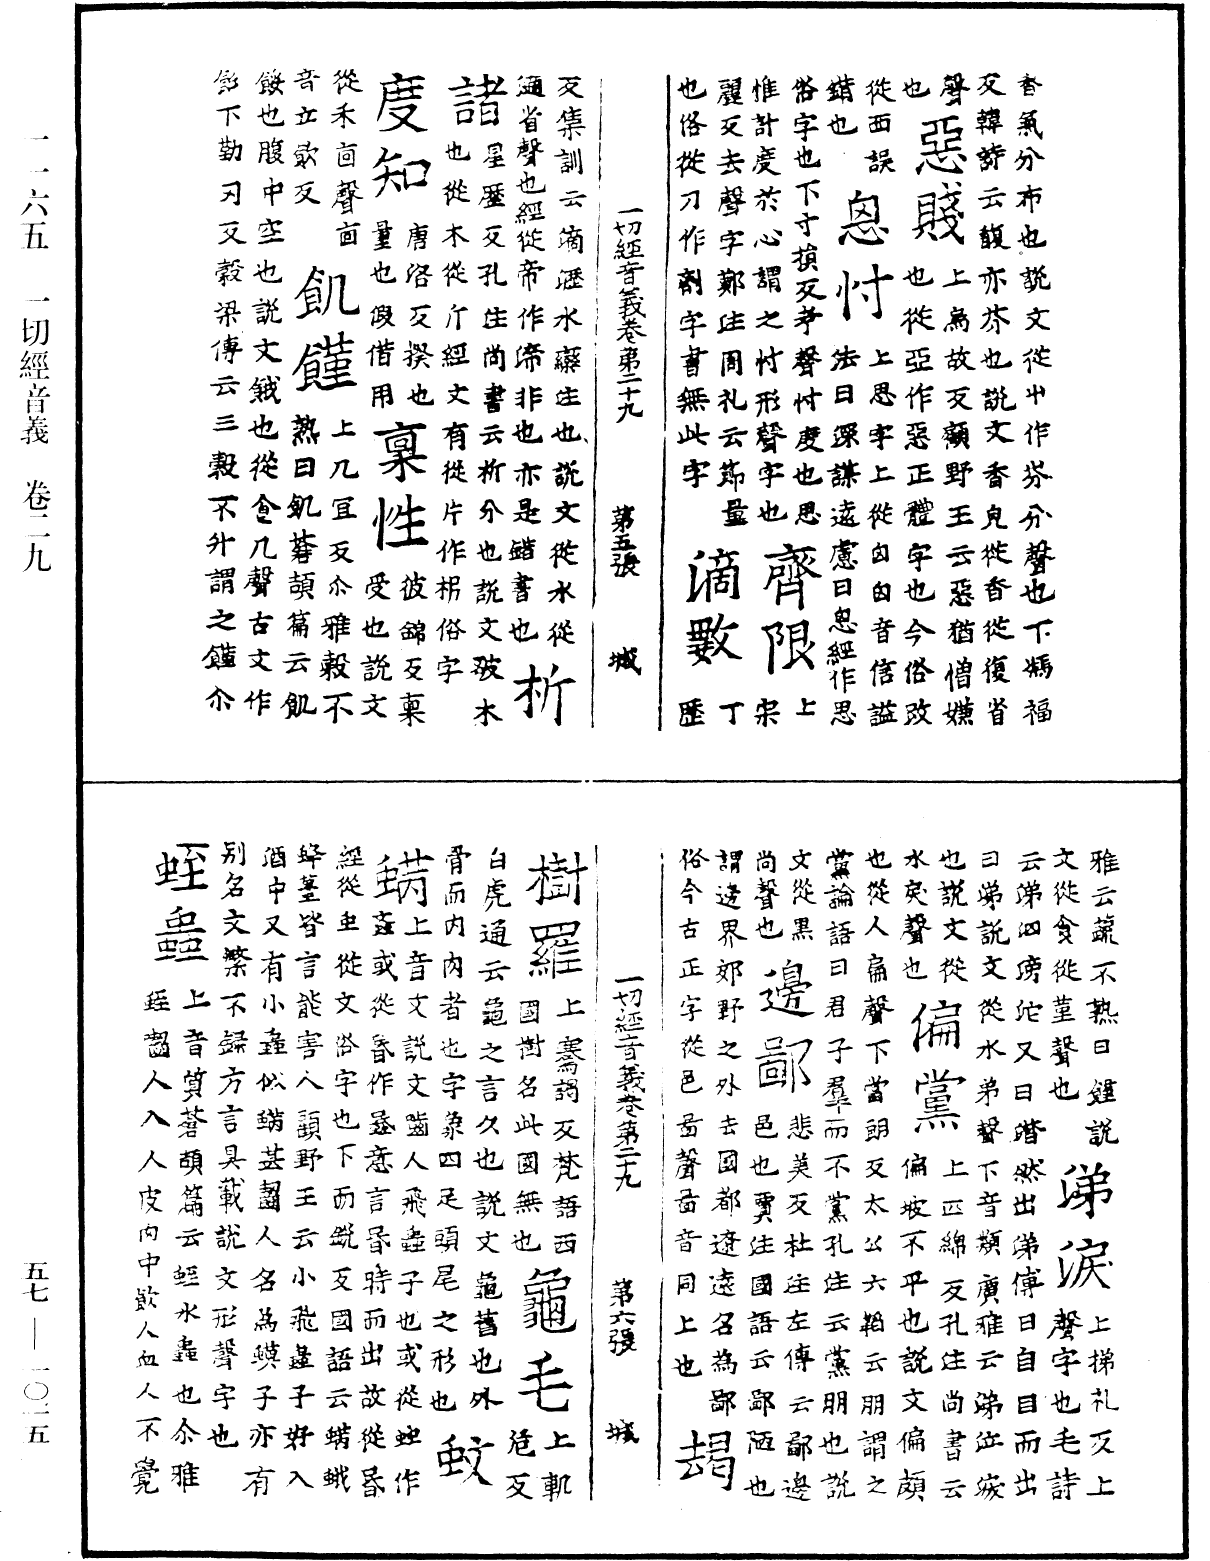 香氣分布也説文從屮作芬分聲也下馮福
反韓詩云馥亦芬也説文香皃從香從復省
聲也
惡賤
上烏故反顧野王云惡猶憎嫌
也從亞作惡正體字也今俗改
從西誤
錯也
恖忖
上思字上從囟囟音信謚
法曰深謀遠慮曰恖經作思
俗字也下寸損反爭聲忖度也思
惟計度於心謂之忖形聲字也
齊限
上
宋
麗反去聲字鄭注周礼云節量
也俗從刀作劑字書無此字
滴數
丁
歷
一切經音義卷第二十九　第五張　城
反集訓云滴瀝水藥注也説文從水從
適省聲也經從帝作渧非也亦是錯書也
析
諸
星歷反孔注尚書云析分也説文破木
也從木從斤經文有從片作枂俗字
度知
唐洛反揆也
量也假借用
稟性
彼錦反稟
受也説文
從禾㐭聲㐭
音立歛反
飢饉
上几宜反尒雅穀不
熟曰飢蒼頡篇云飢
餒也腹中空也説文餓也從食几聲古文作
下勤刃反穀梁傳云三穀不升謂之饉尒
雅云蔬不熟曰饉説
文從食從堇聲也
涕淚
上梯礼反上
聲字也毛詩
云涕泗滂沱又曰潸然出涕傳曰自目而出
曰涕説文從水弟聲下音類廣雅云涕泣淚
也説文從
水戾聲也
偏黨
上匹綿反孔注尚書云
偏坡不平也説文偏頗
也從人扁聲下當朗反太公六韜云朋謂之
黨論語曰君子羣而不黨孔注云黨朋也説
文從黑
尚聲也
邊鄙
悲美反杜注左傳云鄙邊
邑也賈注國語云鄙陋也
謂邊界郊野之外去國都遼遠名為鄙
俗今古正字從邑啚聲啚音同上也
朅
一切經音義卷第二十九　第六張　城
樹羅
上騫謁反梵語西
國樹名此國無也
龜毛
上軌
危反
白虎通云龜之言久也説文龜舊也外
骨而内肉者也字象四足頭尾之形也
蚊
蟎
上音文説文齧人飛蟲子也或從䖵作
蟁或從昏作蟁意言昏時而出故從昏
經從虫從文俗字也下而鋭反國語云蟎蛾
蜂蠆皆言能害人顧野王云小飛蟲子好入
酒中又有小蟲似蟎甚齧人名為蟆子亦有
別名文繁不録方言具載説文形聲字也
蛭蟲
上音質蒼頡篇云蛭水蟲也尒雅
蛭齧人入人皮肉中飲人血人不覺
一一六五　一切經音義　卷二九
五七—一〇二五